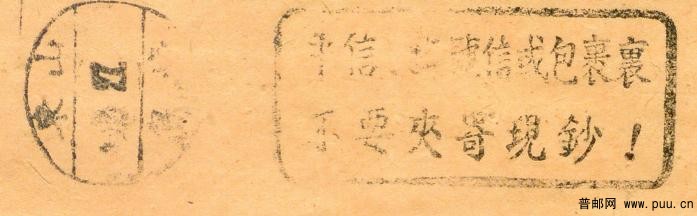 平信、挂號信或包裹裏
不要夾寄現鈔！
山東
普邮网 www.puu.cn